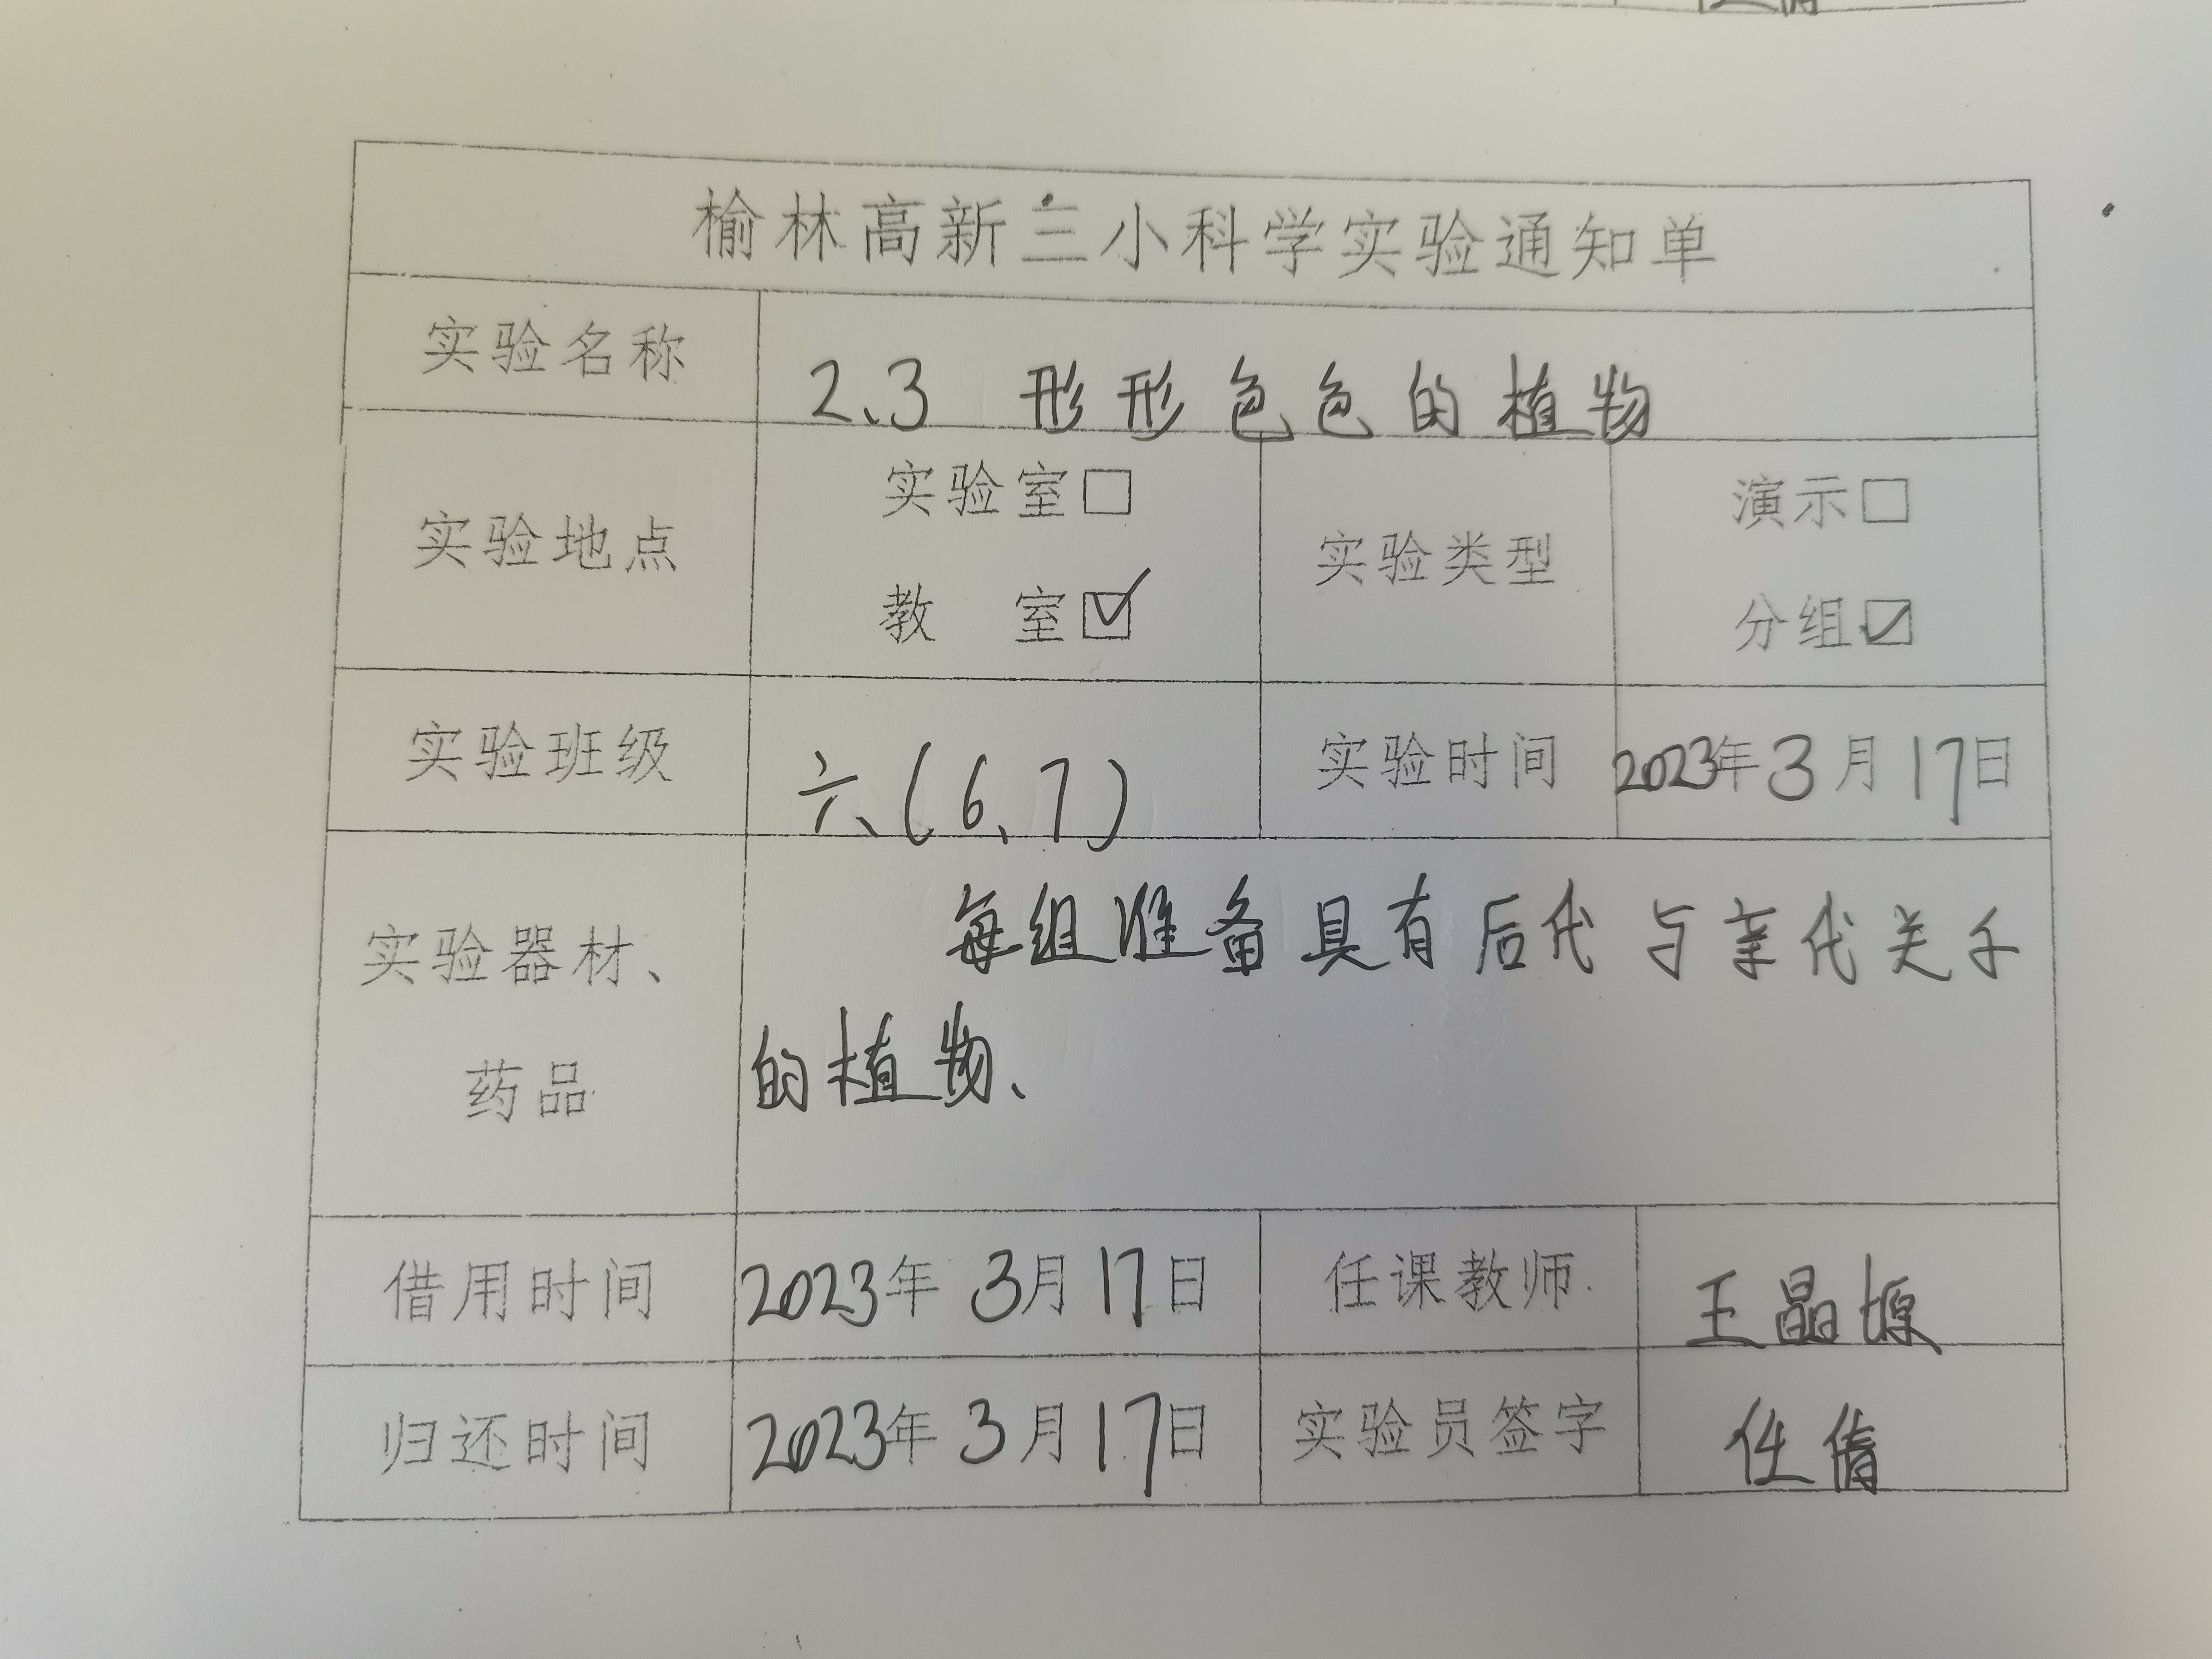 榆林高新三小科学实验通知单
实验名称 2.3 形形色色的植物
实验地点 实验室□ 实验类型 演示□
教 室☑ 分组☑
实验班级 六(6、7) 实验时间 2023年3月17日
实验器材、 每组准备具有后代与亲代关于
药品 的植物、
借用时间 2023年3月17日 任课教师 王晶
归还时间 2023年3月17日 实验员签字 任倩